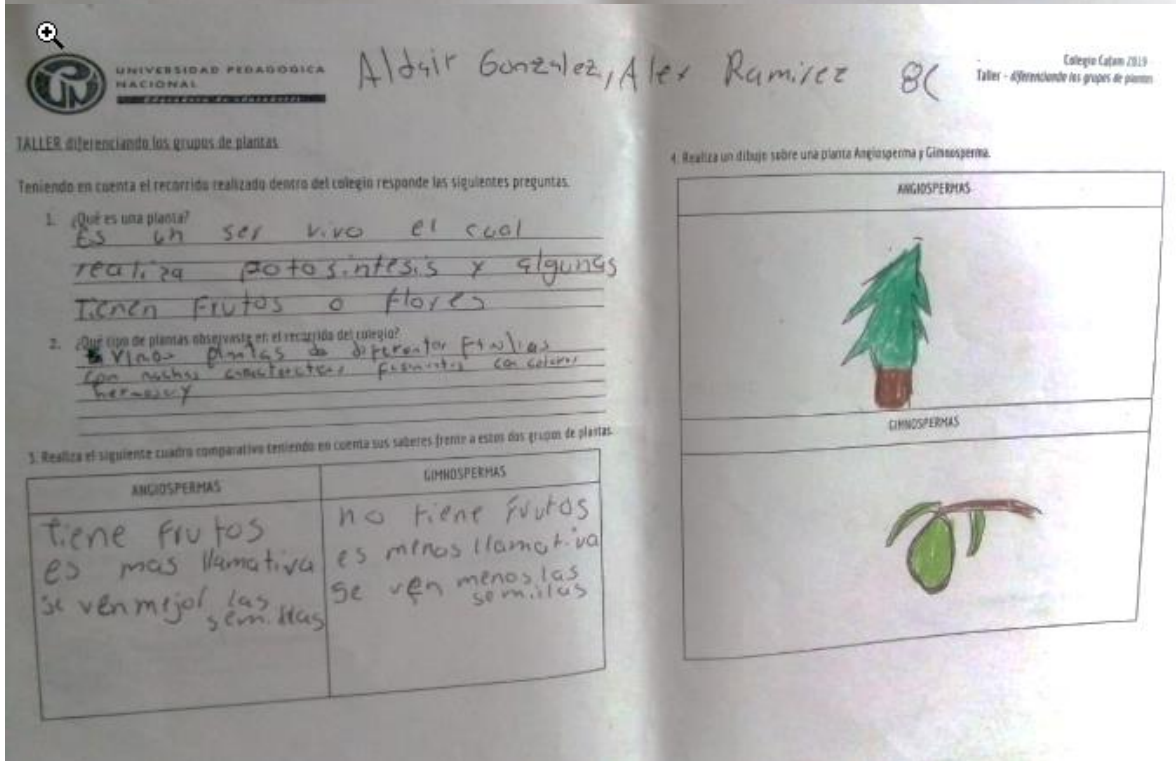 UNIVERSIDAD PEDAGOGICA
NACIONAL
Educadora de educadores
Aldair Gonzalez, Alex Ramirez 8C
Colegio Cafam 2019
Taller - diferenciando los grupos de plantas
TALLER diferenciando los grupos de plantas
Teniendo en cuenta el recorrido realizado dentro del colegio responde las siguientes preguntas.
1. ¿Qué es una planta?
Es un ser vivo el cual
realiza fotosintesis y algunas
Tienen Frutos o flores
2. ¿Qué tipo de plantas observaste en el recorrido del colegio?
vimos plantas de diferentes
con colores
3. Realiza el siguiente cuadro comparativo teniendo en cuenta sus saberes frente a estos dos grupos de plantas.
ANGIOSPERMAS
tiene Frutos
es mas llamativa
se ven mejor las
semillas
GIMNOSPERMAS
no tiene Frutos
es menos llamativa
se ven menos las
semillas
4. Realiza un dibujo sobre una planta Angiosperma y Gimnosperma.
ANGIOSPERMAS
GIMNOSPERMAS